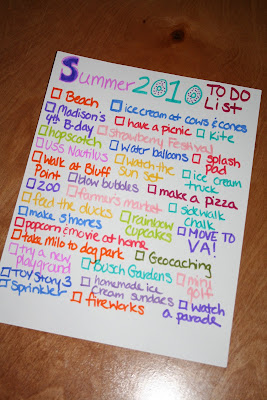 Summer 2010 TO DO List
Beach
ice cream at cows & cones
Madison's 4th B-day
have a picnic
Kite
hopscotch
Strawberry Festival
USS Nautilus
water balloons
splash pad
walk at Bluff Point
watch the sun set
ice cream truck
ZOO
blow bubbles
make a pizza
feed the ducks
farmer's market
sidewalk chalk
make s'mores
rainbow cupcakes
MOVE TO VA!
popcorn & movie at home
Geocaching
take Milo to dog park
try a new playground
Busch Gardens
mini golf
Toy Story 3
homemade ice cream sundaes
watch a parade
Sprinkler
fireworks